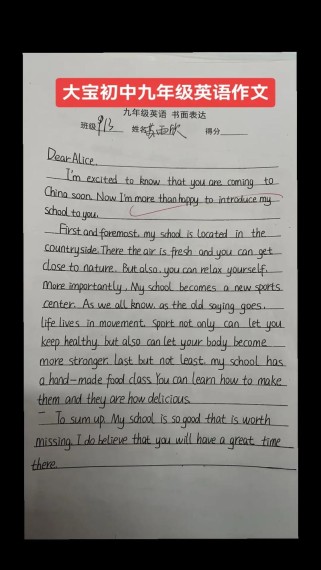 大宝初中九年级英语作文
九年级英语 书面表达
班级 913 姓名 得分
Dear Alice,
I'm excited to know that you are coming to
China soon. Now I'm more than happy to introduce my
school to you.
First and foremost, my school is located in the
countryside. There the air is fresh and you can get
close to nature. But also, you can relax yourself.
more importantly, My school becomes a new sports
center. As we all know, as the old saying goes,
life lives in movement. Sport not only can let you
keep healthy, but also can let your body become
more stronger. last but not least, my school has
a hand-made food class. You can learn how to make
them and they are how delicious.
To sum up. My school is so good that is worth
missing. I do believe that you will have a great time
there.